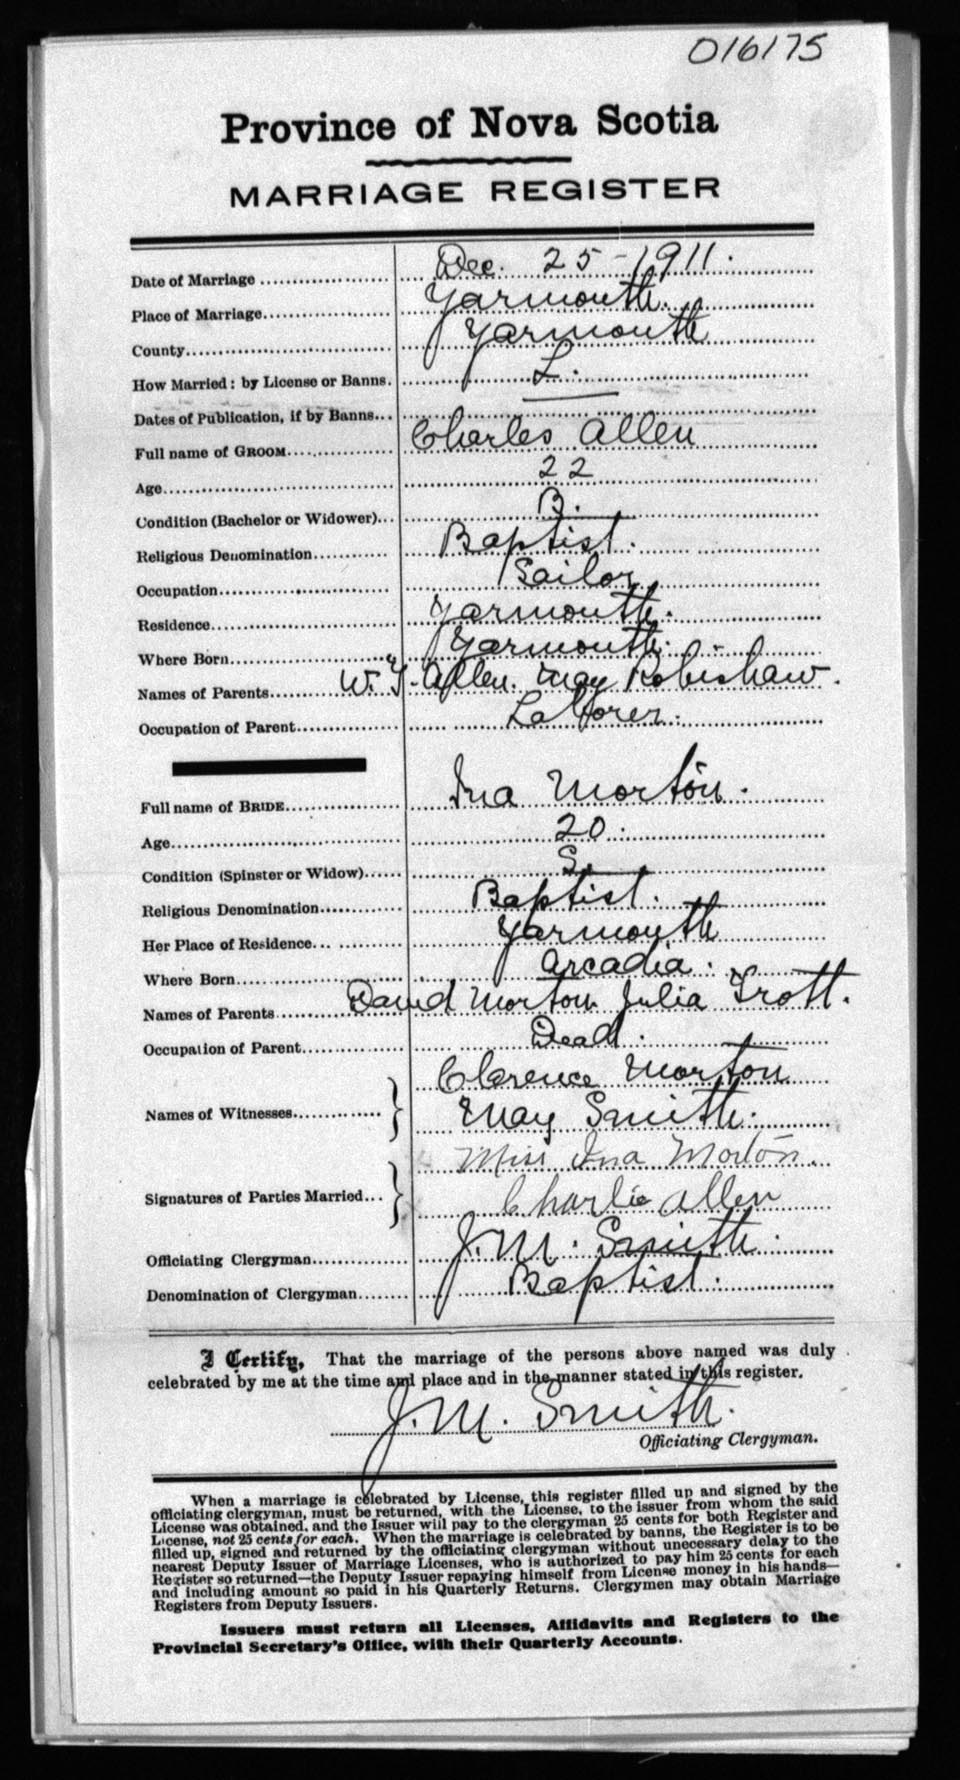 016175
Province of Nova Scotia
MARRIAGE REGISTER
Date of Marriage Dec. 25 - 1911.
Place of Marriage Yarmouth.
County Yarmouth
How Married: by License or Banns. L.
Dates of Publication, if by Banns
Full name of GROOM Charles Allen
Age 22
Condition (Bachelor or Widower) B.
Religious Denomination Baptist.
Occupation Sailor
Residence Yarmouth.
Where Born Yarmouth.
Names of Parents Allen. May Robishaw.
Occupation of Parent Laborer.
Full name of BRIDE Ina Morton.
Age 20.
Condition (Spinster or Widow) S.
Religious Denomination Baptist.
Her Place of Residence Yarmouth
Where Born Arcadia.
Names of Parents David Morton Julia Trott.
Occupation of Parent Dead.
Clarence Morton
Names of Witnesses
May Smith.
Miss Ina Morton.
Signatures of Parties Married
Charlie Allen
Officiating Clergyman J. M. Smith.
Denomination of Clergyman Baptist.
I Certify, That the marriage of the persons above named was duly
celebrated by me at the time and place and in the manner stated in this register.
J. M. Smith.
Officiating Clergyman.
When a marriage is celebrated by License, this register filled up and signed by the
officiating clergyman, must be returned, with the License, to the issuer from whom the said
License was obtained, and the Issuer will pay to the clergyman 25 cents for both Register and
License, not 25 cents for each. When the marriage is celebrated by banns, the Register is to be
filled up, signed and returned by the officiating clergyman without unnecessary delay to the
nearest Deputy Issuer of Marriage Licenses, who is authorized to pay him 25 cents for each
Register so returned—the Deputy Issuer repaying himself from License money in his hands—
and including amount so paid in his Quarterly Returns. Clergymen may obtain Marriage
Registers from Deputy Issuers.
Issuers must return all Licenses, Affidavits and Registers to the
Provincial Secretary's Office, with their Quarterly Accounts.